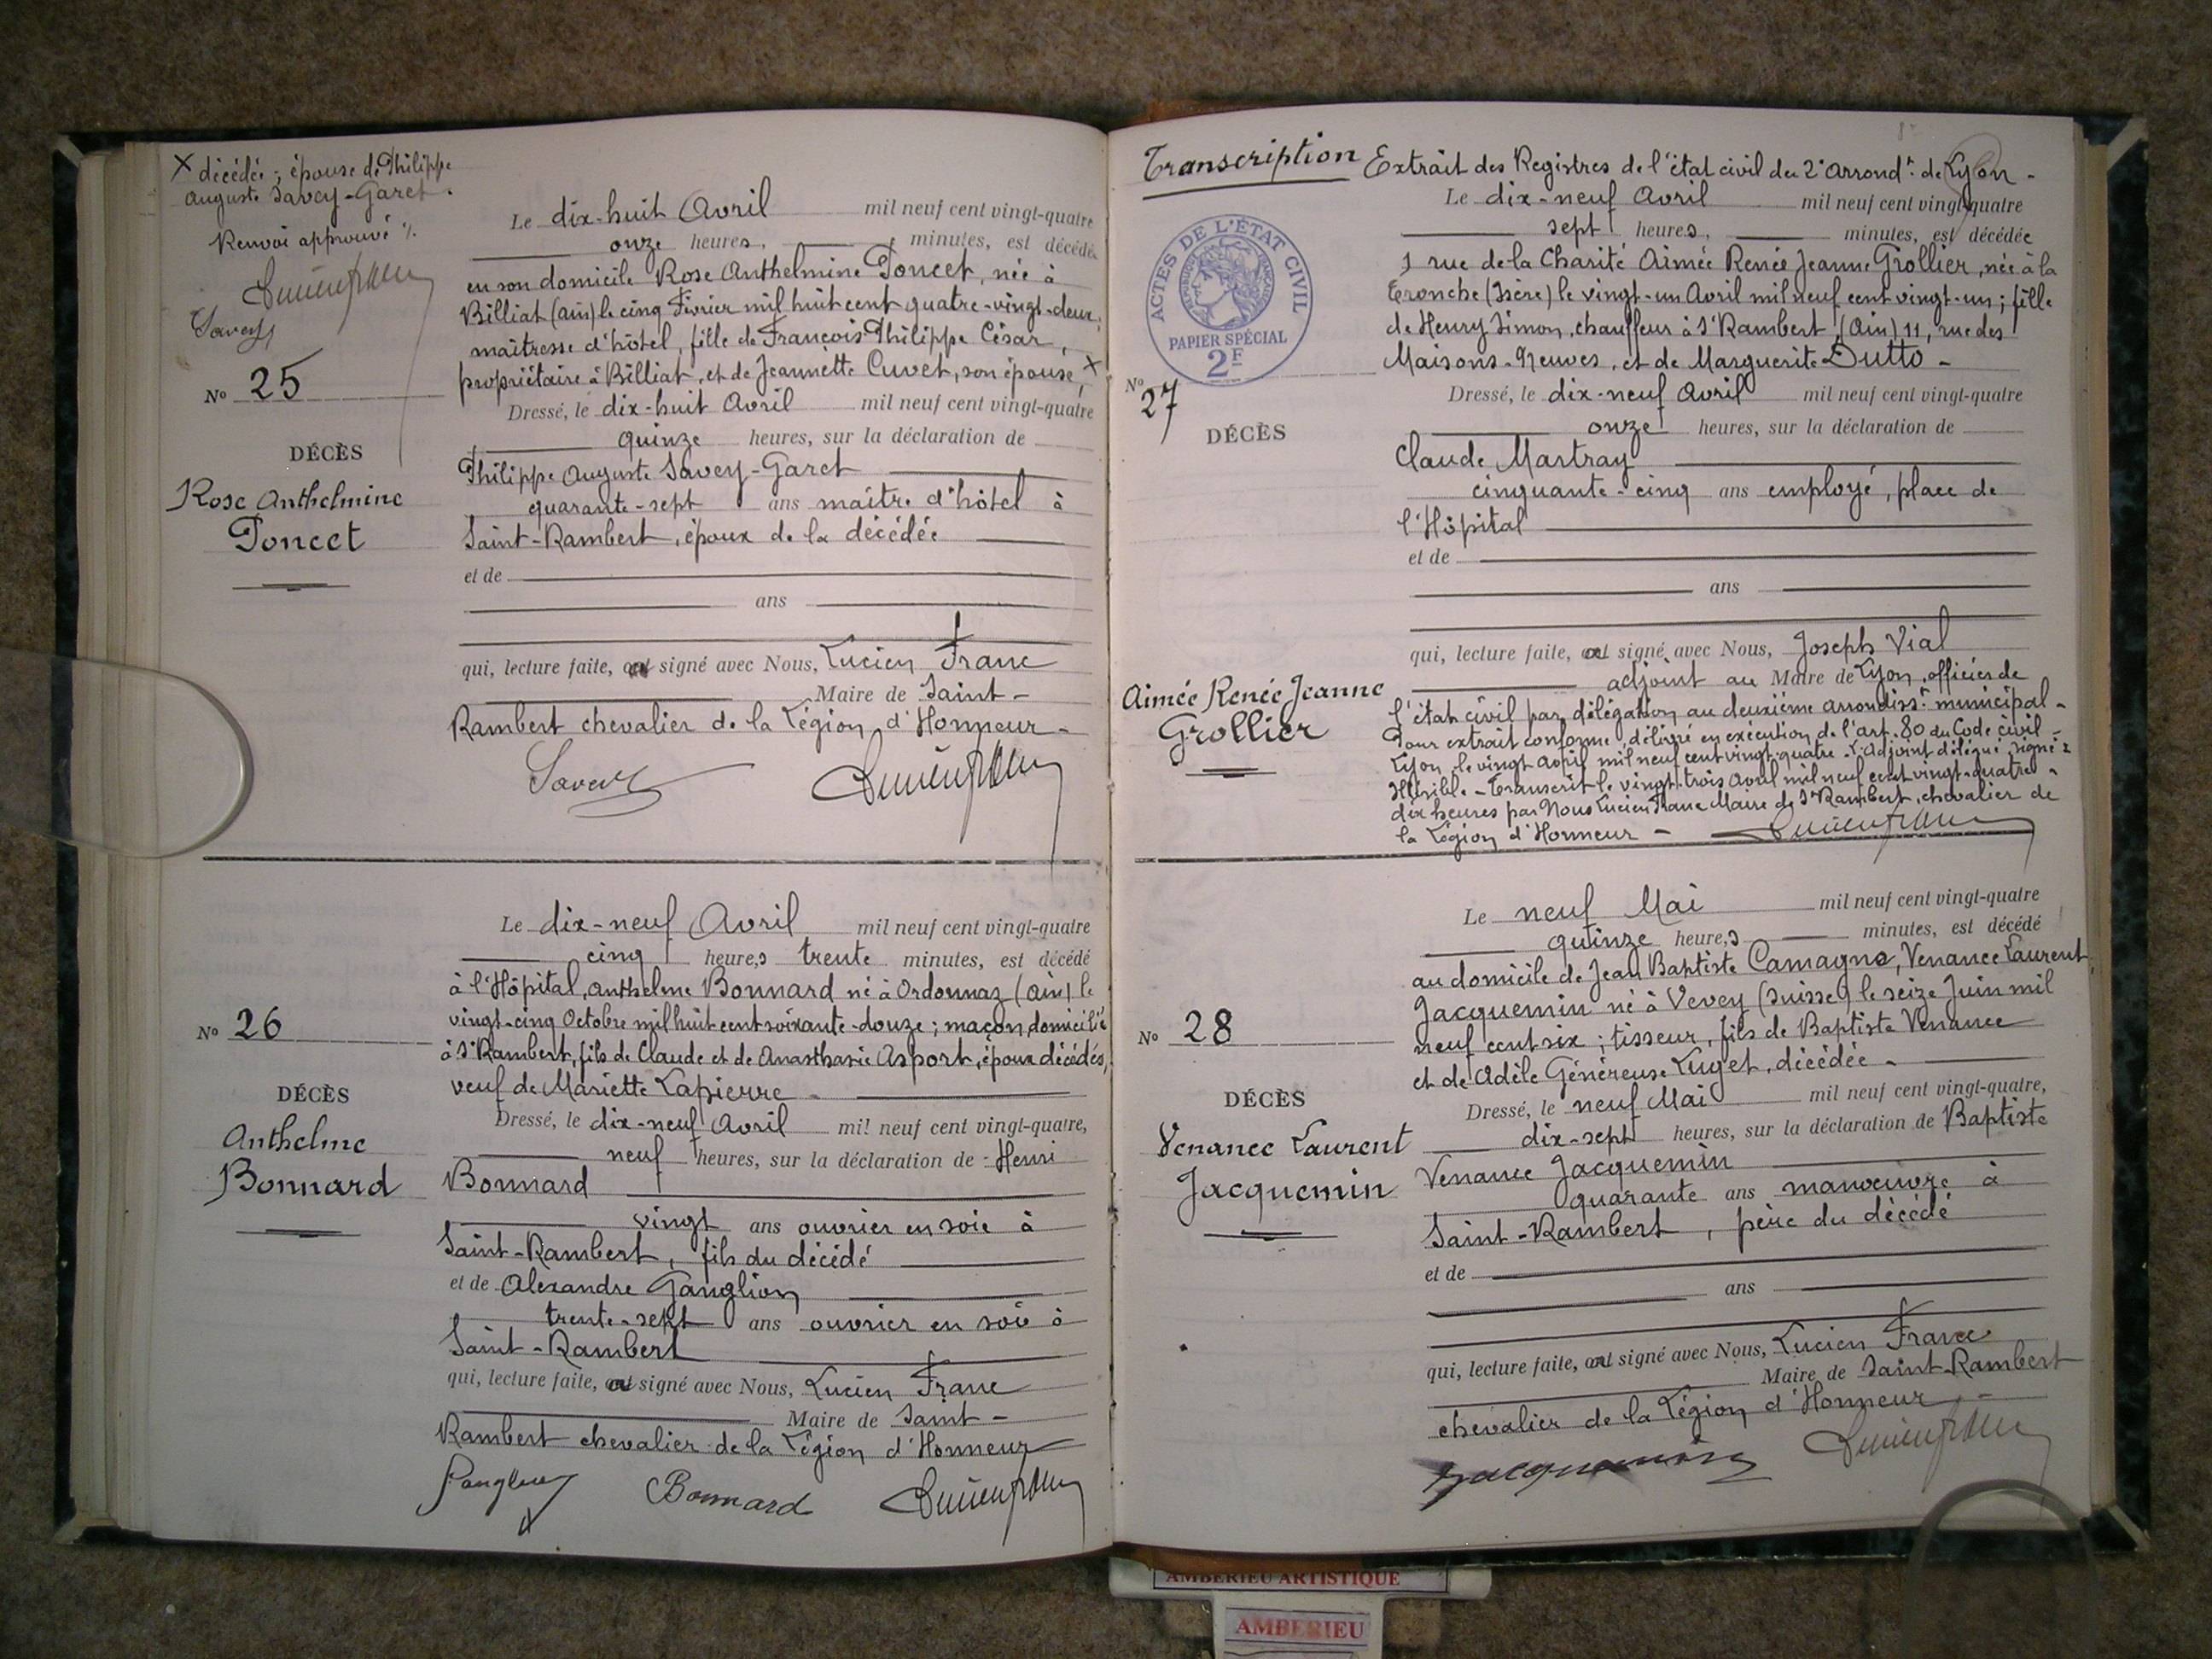 X décédée ; épouse de Philippe
Auguste Savey-Garet.
Renvoi approuvé %.
Savey
Nº 25
DÉCÈS
Rose Anthelmine
Poncet
Le dix-huit Avril mil neuf cent vingt-quatre
onze heures, minutes, est décédée
en son domicile Rose Anthelmine Poncet, née à
Billiat (Ain) le cinq Février mil huit cent quatre-vingt-deux,
maîtresse d'hôtel, fille de François Philippe César,
propriétaire à Billiat, et de Jeannette Cuvet, son épouse, X
Dressé, le dix-huit Avril mil neuf cent vingt-quatre
quinze heures, sur la déclaration de
Philippe Auguste Savey-Garet
quarante-sept ans maître d'hôtel à
Saint-Rambert, époux de la décédée
et de
ans
qui, lecture faite, a signé avec Nous, Lucien Franc
Maire de Saint-
Rambert chevalier de la Légion d'Honneur -
Savey
Nº 26
DÉCÈS
Anthelme
Bonnard
Le dix-neuf Avril mil neuf cent vingt-quatre
cinq heures trente minutes, est décédé
à l'Hôpital, Anthelme Bonnard né à Ordonnaz (Ain) le
vingt-cinq Octobre mil huit cent soixante-douze ; maçon, domicilié
à St Rambert, fils de Claude et de Anasthasie Asport, époux décédés,
veuf de Mariette Lapierre -
Dressé, le dix-neuf Avril mil neuf cent vingt-quatre,
neuf heures, sur la déclaration de Henri
Bonnard
vingt ans ouvrier en soie à
Saint-Rambert, fils du décédé
et de Alexandre Ganglion
trente-sept ans ouvrier en soie à
Saint-Rambert
qui, lecture faite, ont signé avec Nous, Lucien Franc
Maire de Saint-
Rambert chevalier de la Légion d'Honneur
Bonnard
Transcription Extrait des Registres de l'état civil du 2e Arrondt de Lyon -
ACTES DE L'ÉTAT CIVIL
RÉPUBLIQUE FRANÇAISE
PAPIER SPÉCIAL
2F
Nº 27
DÉCÈS
Aimée Renée Jeanne
Grollier
Le dix-neuf Avril mil neuf cent vingt-quatre
sept heures, minutes, est décédée
1 rue de la Charité Aimée Renée Jeanne Grollier, née à la
Tronche (Isère) le vingt-un Avril mil neuf cent vingt-un ; fille
de Henry Simon, chauffeur à St Rambert (Ain) 11, rue des
Maisons-Neuves, et de Marguerite Dutto -
Dressé, le dix-neuf Avril mil neuf cent vingt-quatre
onze heures, sur la déclaration de
Claude Martray
cinquante-cinq ans employé, place de
l'Hôpital
et de
ans
qui, lecture faite, a signé avec Nous, Joseph Vial
adjoint au Maire de Lyon, officier de
l'état civil par délégation au deuxième arrondisst municipal -
Pour extrait conforme, délivré en exécution de l'art. 80 du Code civil -
Lyon, le vingt Avril mil neuf cent vingt-quatre. L'Adjoint délégué, signé :
Illisible - Transcrit le vingt-trois Avril mil neuf cent vingt-quatre -
dix heures par Nous Lucien Franc Maire de St Rambert, chevalier de
la Légion d'Honneur -
Nº 28
DÉCÈS
Venance Laurent
Jacquemin
Le neuf Mai mil neuf cent vingt-quatre
quinze heures minutes, est décédé
au domicile de Jean Baptiste Camagne, Venance Laurent
Jacquemin né à Vevey (Suisse) le seize Juin mil
neuf cent six ; tisseur, fils de Baptiste Venance
et de Adèle Généreuse Luget, décédée -
Dressé, le neuf Mai mil neuf cent vingt-quatre,
dix-sept heures, sur la déclaration de Baptiste
Venance Jacquemin
quarante ans manœuvre à
Saint-Rambert, père du décédé
et de
ans
qui, lecture faite, a signé avec Nous, Lucien Franc
Maire de Saint-Rambert
chevalier de la Légion d'Honneur -
Jacquemin
AMBERIEU ARTISTIQUE
AMBERIEU